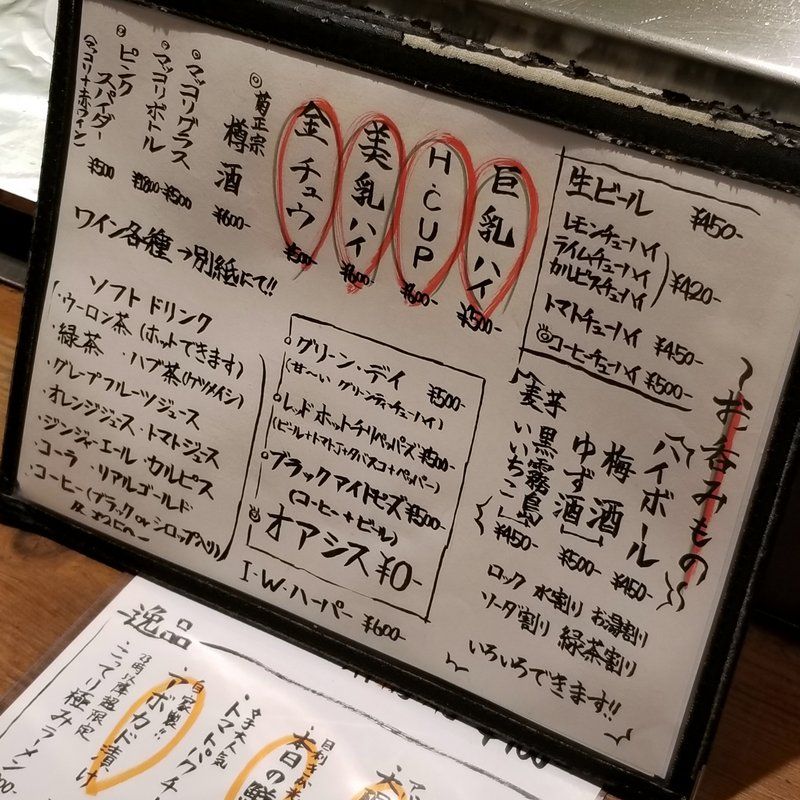 ～お呑みもの～
生ビール ¥450-
レモンチューハイ
ライムチューハイ
カルピスチューハイ
¥420-
トマトチューハイ ¥450-
コーヒーチューハイ ¥500-
ハイボール ¥450-
梅酒
ゆず酒
¥500-
芋 黒霧島
麦 いいちこ
¥450-
ロック 水割り お湯割り
ソーダ割り 緑茶割り
いろいろできます!!
巨乳ハイ ¥500-
H・CUP ¥600-
美乳ハイ ¥600-
金チュウ ¥500-
◎菊正宗
樽酒 ¥600-
マッコリグラス ¥500-
マッコリボトル ¥1800-
ピンクスパイダー ¥500
(マッコリ+赤ワイン)
ワイン各種→別紙にて!!
・グリーン・デイ ¥500-
(甘〜い グリーンティーチューハイ)
・レッドホットチリペッパーズ ¥500-
(ビール+トマトJ+タバスコ+ペッパー)
・ブラックアイドピーズ ¥500-
(コーヒー+ビール)
オアシス ¥0-
I・W・ハーパー ¥600-
ソフトドリンク
・ウーロン茶 (ホットできます)
・緑茶 ・ハブ茶(ケツメイシ)
・グレープフルーツジュース
・オレンジジュース・トマトジュース
・ジンジャーエール・カルピス
・コーラ ・リアルゴールド
・コーヒー(ブラック or シロップ入り)
逸品
本日の鮮
女子大人気
・トマトパクチ
自家製!!
・アボカド漬け
23時以降超限定
・こってり極みラーメン